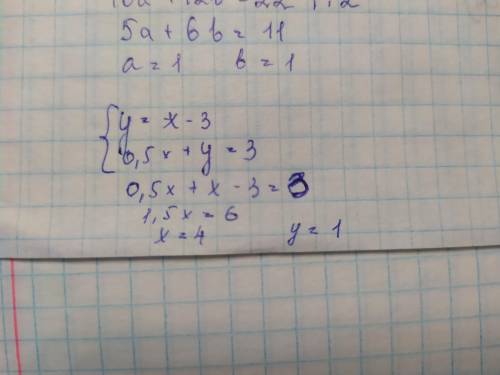 5a + 6b = 11
a = 1 b = 1
y = x - 3
0,5x + y = 3
0,5x + x - 3 = 3
1,5x = 6
x = 4 y = 1